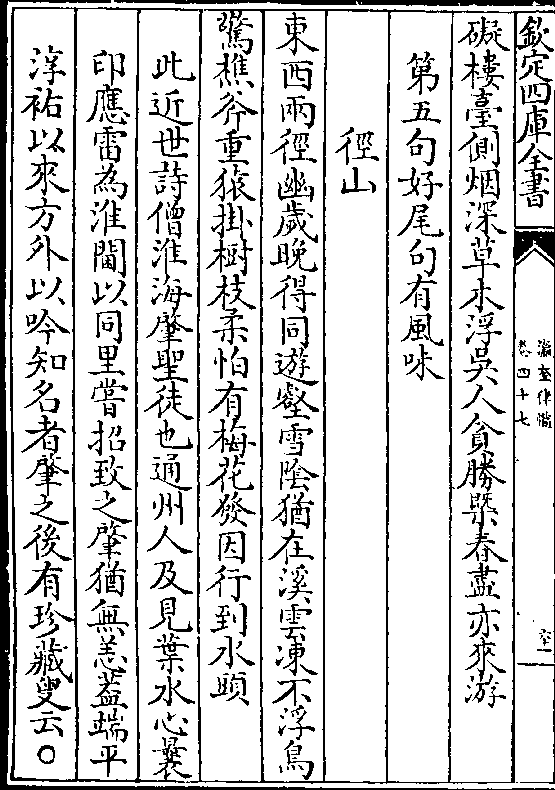 欽定四庫全書
瀛奎律髓
卷四十七
六十一
礙棲臺側烟深草木浮吳人貪勝槩春盡亦來游
第五句好尾句有風味
徑山
東西兩徑幽歲晚得同遊壑雪陰猶在溪雲凍不浮鳥
驚樵斧重猿掛樹枝柔怕有梅花發因行到水頭
此近世詩僧淮海肇聖徒也通州人及見葉水心曩
印應雷為淮閫以同里嘗招致之肇猶無恙蓋端平
淳祐以來方外以吟知名者肇之後有珍藏叟云○